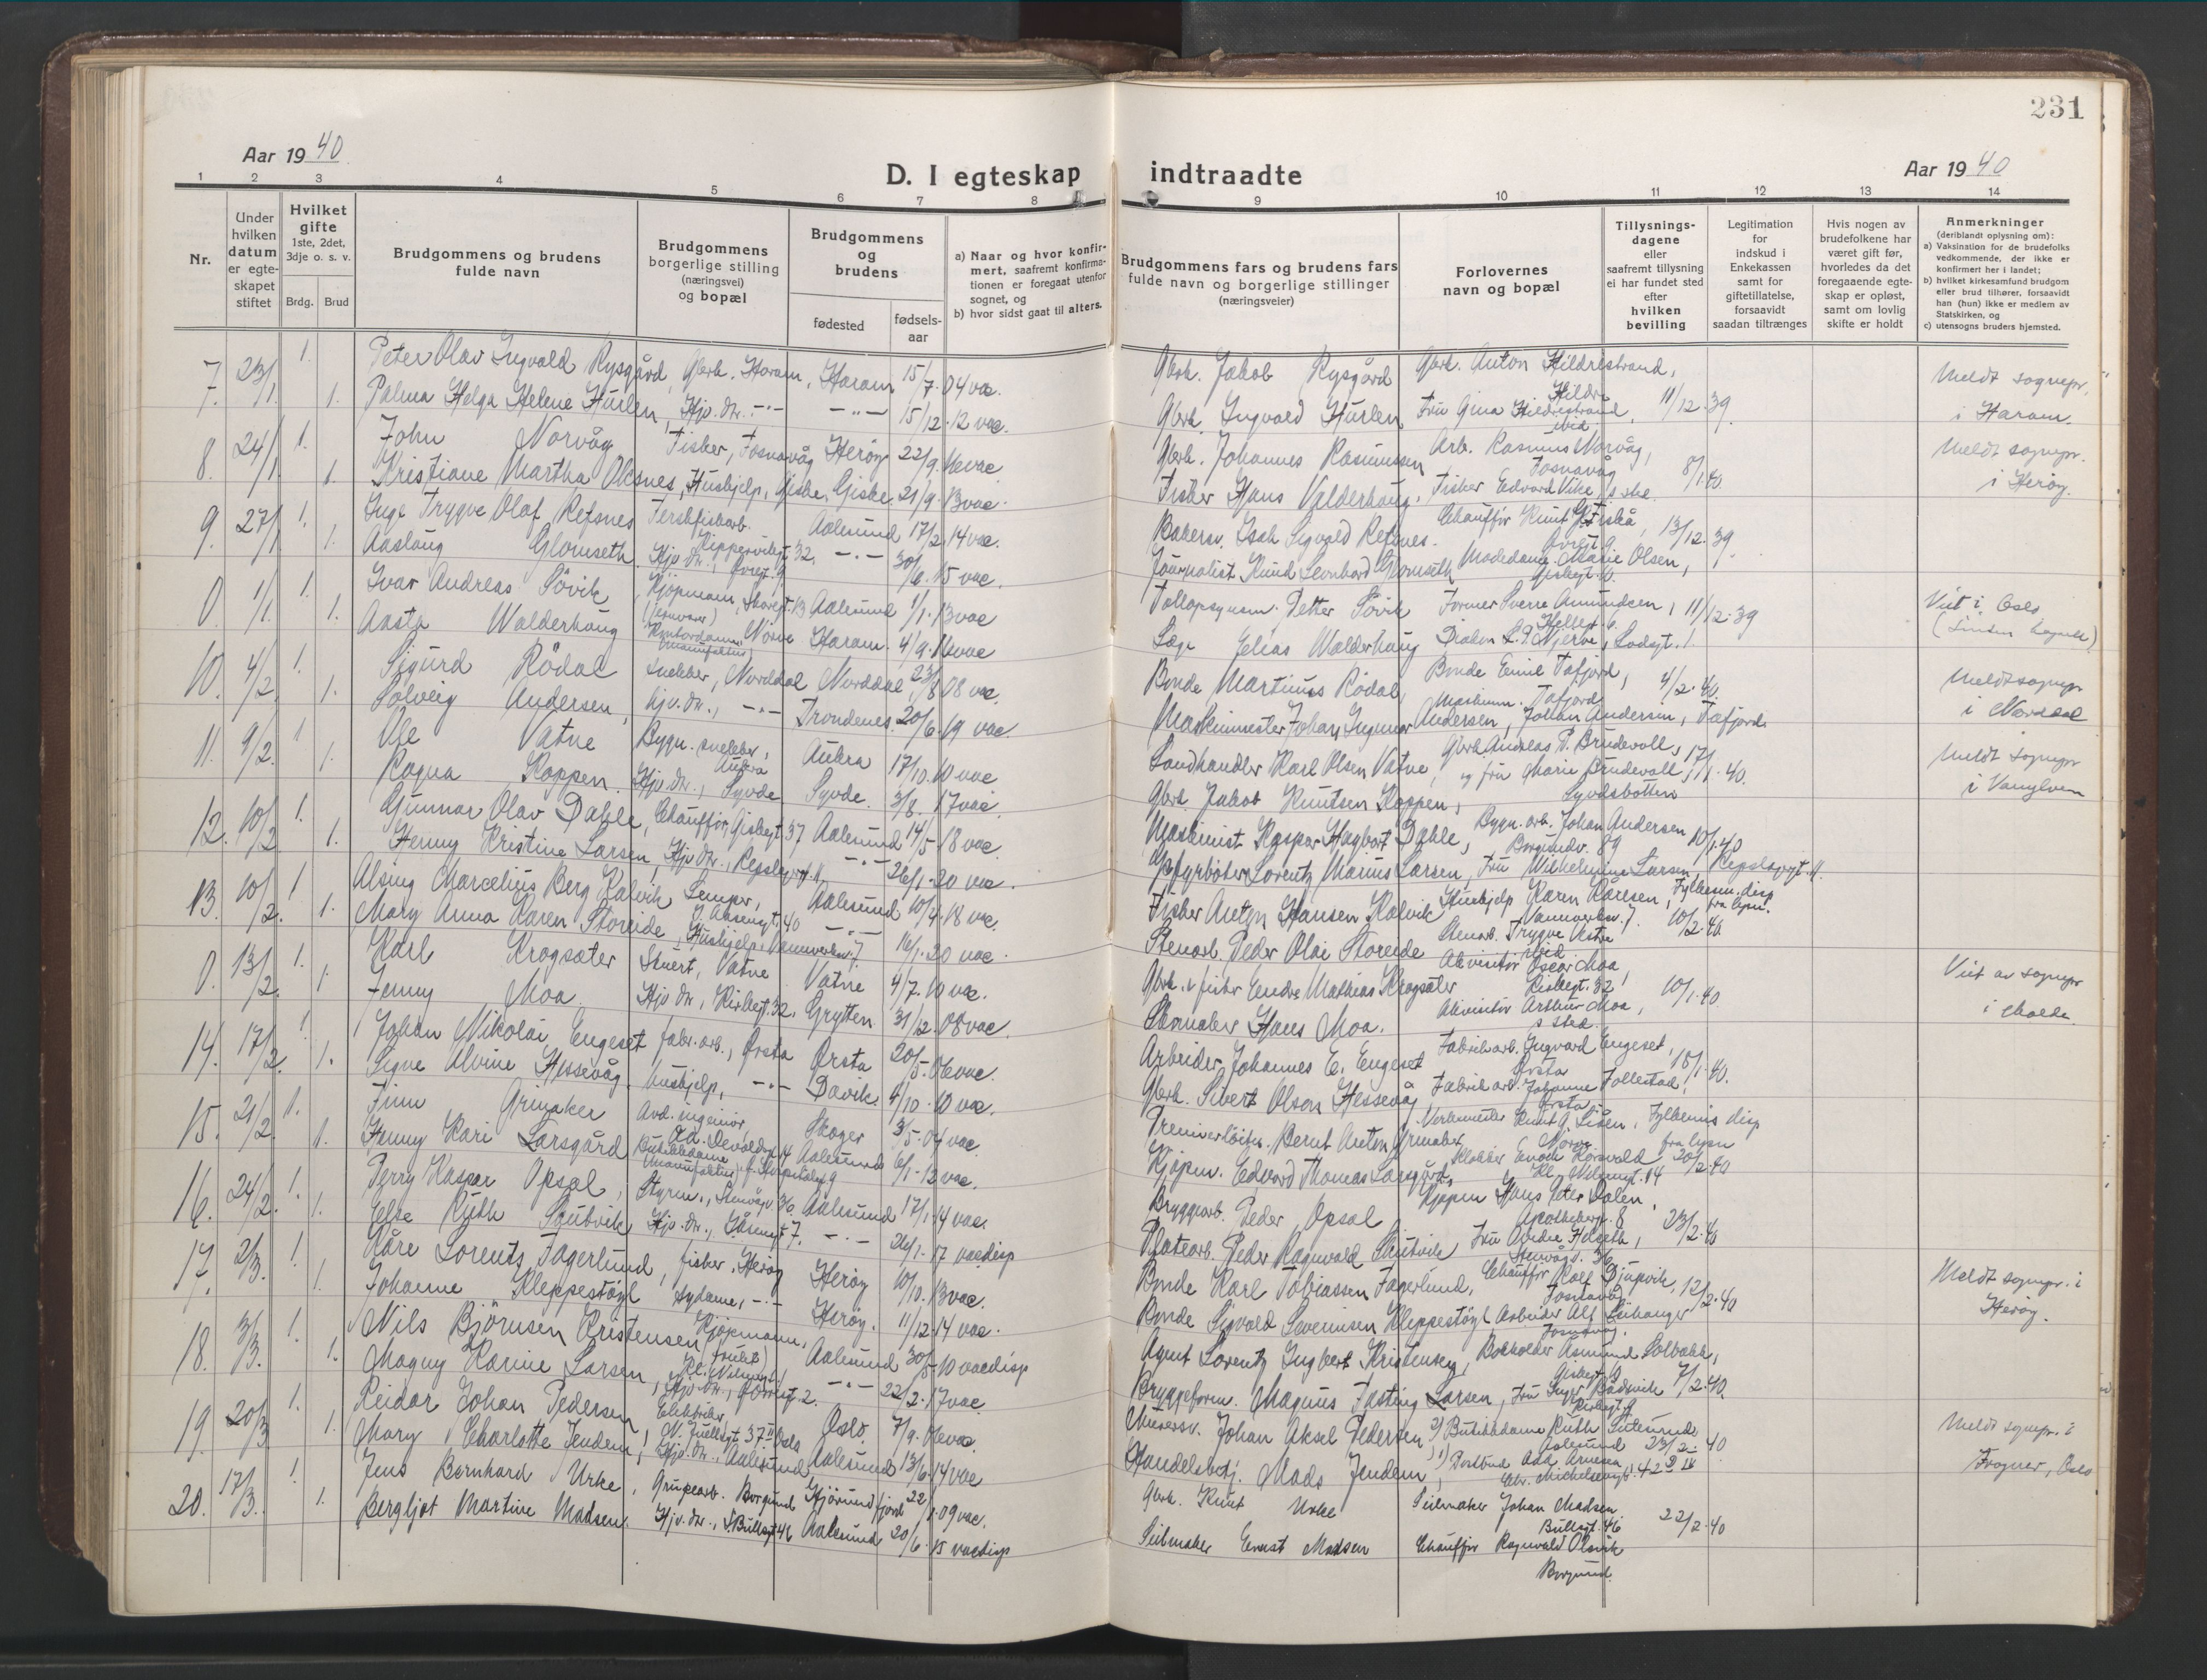 231
Aar 1940
D. I egteskap indtraadte
Aar 1940
1 2 3 4 5 6 7 8 9 10 11 12 13 14
Nr.
Under hvilken datum er egteskapet stiftet
Hvilket gifte 1ste, 2det, 3dje o. s. v.
Brdg. Brud
Brudgommens og brudens fulde navn
Brudgommens borgerlige stilling (næringsvei) og bopæl
Brudgommens og brudens
fødested
fødsels-aar
a) Naar og hvor konfirmert, saafremt konfirmationen er foregaat utenfor sognet, og
b) hvor sidst gaat til alters.
Brudgommens fars og brudens fars fulde navn og borgerlige stillinger (næringsveier)
Forlovernes navn og bopæl
Tillysningsdagene eller saafremt tillysning ei har fundet sted efter hvilken bevilling
Legitimation for indskud i Enkekassen samt for giftetillatelse, forsaavidt saadan tiltrænges
Hvis nogen av brudefolkene har været gift før, hvorledes da det foregaaende egteskap er opløst, samt om lovlig skifte er holdt
Anmerkninger (deriblandt oplysning om):
a) Vaksination for de brudefolks vedkommende, der ikke er konfirmert her i landet;
b) hvilket kirkesamfund brudgom eller brud tilhører, forsaavidt han (hun) ikke er medlem av Statskirken, og
c) utensogns bruders hjemsted.
7. 23/1 1. Peter Olav Ingvald Rysgård, Gbrk. Haram, Haram 15/7.04 vac. Gbrk. Jakob Rysgård Gbrk. Anton Hildrestrand, Hildre Meldt sognepr.
1. Palma Helga Helene Hurlen, Hjv. dtr. -"- -"- 15/12.12 vac. Gbrk. Ingvald Hurlen Fru Gina Hildrestrand, ibid 11/12.39 i Haram.
8. 24/1 1. John Norvåg Fisker, Fosnavåg Herøy 22/9. vac Gbrk. Johannes Rasmussen Arb. Rasmus Norvåg, Fosnavåg Meldt sognepr.
1. Kristiane Martha Oksnes, Hushjelp, Giske, Giske 21/9.13 vac. Fisker Hans Valderhaug, Fisker Edvard Vike, s. std. 8/1.40 i Herøy.
9. 27/1 1. Inge Trygve Olaf Refsnes Ferskfiskarb. Kippervikgt 32. Aalesund 17/2.14 vac. Bakersv. Isak Sigvald Refsnes. Chauffør Knut Øvregt. 9 13/12.39
1. Aaslaug Glomseth Hjv. dtr., Øvregt. 9 -"- 30/6.15 vac. Journalist Knud Leonhard Glomseth Modedame Marie Olsen,
0. 1/1. 1. Ivar Andreas Søvik Kjøpmann, Skaregt. 13 Aalesund 1/1.13 vac Tollopsynsm. Petter Søvik Former Sverre Amundsen, 11/12.39 Viet i Oslo
1. Aasta Walderhaug Kontordame, Nørve Haram. 4/9. vac Læge Elias Walderhaug Diakon L. P. Njerve, Lodegt. 1.
10. 4/2. 1. Sigurd Rødal Snekker, Norddal Norddal 23/8 08 vac. Bonde Martinus Rødal, Bonde Emil Tafjord, 4/2.40. Meldt sognepr
1. Solveig Andersen, hjv. dtr., -"- Trondenes 20/6.19 vac. Maskinmester Johan Ingemar Andersen, Maskinm. Johan Andersen, Tafjord. i Norddal
11. 9/2. 1 Ole Vatne Bygn. snekker, Aukra Aukra 17/10.10 vac Landhandler Karl Olsen Vatne, Gbrk. Andreas P. Brudevoll, 17/1.40. Meldt sognepr
1. Ragna Koppen. Hjv. dtr., Syvde Syvde. 3/8.17 vac Gbrk. Jakob Knutsen Koppen, og fru Marie Brudevoll, Syvdsbotten i Vanylven
12. 10/2 1. Gunnar Olav Dahle, Chauffør, Giskegt 37 Aalesund 14/5.18 vac. Maskinist Kaspar Hagbart Dahle, Bygn. arb. Johan Andersen Borgundv. 89 10/1.40
1. Henny Kristine Larsen, Hjv. dtr., Repslagergt. 11, -"- 26/1.20 vac. Fyrbøter Lorentz Marius Larsen, Fru Wilhelmine Larsen, Repslagergt. 11.
13. 10/2. 1 Alsing Marcelius Berg Kalvik Semper, J. Aasengt. 40 Aalesund 10/4.18 vac. Fisker Anton Hansen Kalvik Hushjelp Karen Karlsen, Vannverksv. 7. Fylkesm. disp fra lysn.
1. Mary Anna Karen Storeide, Hushjelp, Vannverksv. 7 -"- 16/1.20 vac. Stenarb. Peder Olai Storeide Stenarb. Trygve Vestre ibid 10/2.40.
0. 13/2. 1. Karl Krogsæter Stuert, Vatne Vatne 4/7.10 vac. Gbrk. & fisker Endre Mathias Krogsæter Akvisitør Oscar Moa, Kirkegt. 32 Viet av sognepr
1. Jenny Moa Hjv. dtr., Kirkegt. 32, Grytten 31/12.08 vac. Skomaker Hans Moa. Akvisitør Arthur Moa, s. sted. 10/1.40 i Molde
14. 17/2. 1 Johan Nikolai Engeset fabr. arb., Ørsta Ørsta 20/5.06 vac. Arbeider Johannes E. Engeset Fabrikarb. Ingvard Engeset, Ørsta 18/1.40.
1. Signe Alvine Hessevåg, hushjelp, -"- Davik. 4/10.10 vac. Gbrk. Sivert Olsen Hessevåg Fabrikarb. Johanne Follestad, Ørsta
15. 21/2. 1. Finn Grimaker Avd. ingeniør, Skoger 3/5.04 vac. Premierløitn. Bernt Anton Grimaker, Verksmester Knut A. Liøen, Nørve Fylkesm.s disp fra lysn
1. Henny Kari Larsgård Butikkdame Aalesund 6/1.12 vac. Kjøpm. Edvard Thomas Larsgård, Klokker Enok Korsvold, 20/2.40
16. 24/2. 1. Perry Kaspar Opsal, Styrm., Stenvågv. 36. Aalesund 17/1.14 vac. Bryggearb. Peder Opsal Kjøpm Hans Peter Dalen, Apothekerg. 8 23/2.40
1. Else Ruth Hjv. dtr., 7. -"- 26/1.17 vac disp Platearb. Peder Ragnvald Fru Helgeth, Stenvågv. 36
17. 2/3. 1. Kåre Lorents Fagerlund, fisker, Herøy Herøy 10/10.13 vac. Bonde Karl Tobiassen Fagerlund, Chauffør Rolf Djupvik, Fosnavåg 12/2.40 Meldt sognepr. i
1. Johanne Kleppestøyl sydame, -"- Herøy. 11/12.14 vac. Bonde Sigvald Severinsen Kleppestøyl Arbeider Alf Leikanger Fosnavåg. Herøy.
18. 3/3. 1. Nils Bjørnsen Kristensen Kjøpmann, (frukt) Aalesund 30/5.10 vac disp Agent Lorentz Ingbert Kristensen, Bokholder Asmund Solbakk,
1. Magny Karine Larsen, Hjv. dtr., -"- 22/2.17 vac. Bryggeform. Magnus Fasting Larsen, Fru Inger Bådsvik 7/2.40.
19. 20/3 1. Reidar Johan Pedersen, Elektriker, N. Juelsgt 37 II Oslo Oslo. 7/9.06 vac. Murersv. Johan Aksel Pedersen 2) Butikkdame Ruth Aalesund 23/2.40 Meldt sognepr. i
1. Mary Charlotte Jendem, Hjv. dtr., Aalesund Aalesund 13/6.14 vac Handelsbetj. Mads Jendem, 1) Postbud Ada Arnesen Chr. Michelsensgt. 42 Frogner, Oslo
20. 17/3. 1 Jens Bernhard Urke, Grubearb. Borgund Hjørundfjord 22/1.09 vac. Gbrk. Knut Urke Seilmaker Johan Madsen Bullsgt. 46 22/2.40
1. Bergljot Martine Madsen. Hjv. dtr., Bullsgt 46 Aalesund 20/6.15 vac disp Seilmaker Ernst Madsen Chauffør Ragnvald Olsvik Borgund.